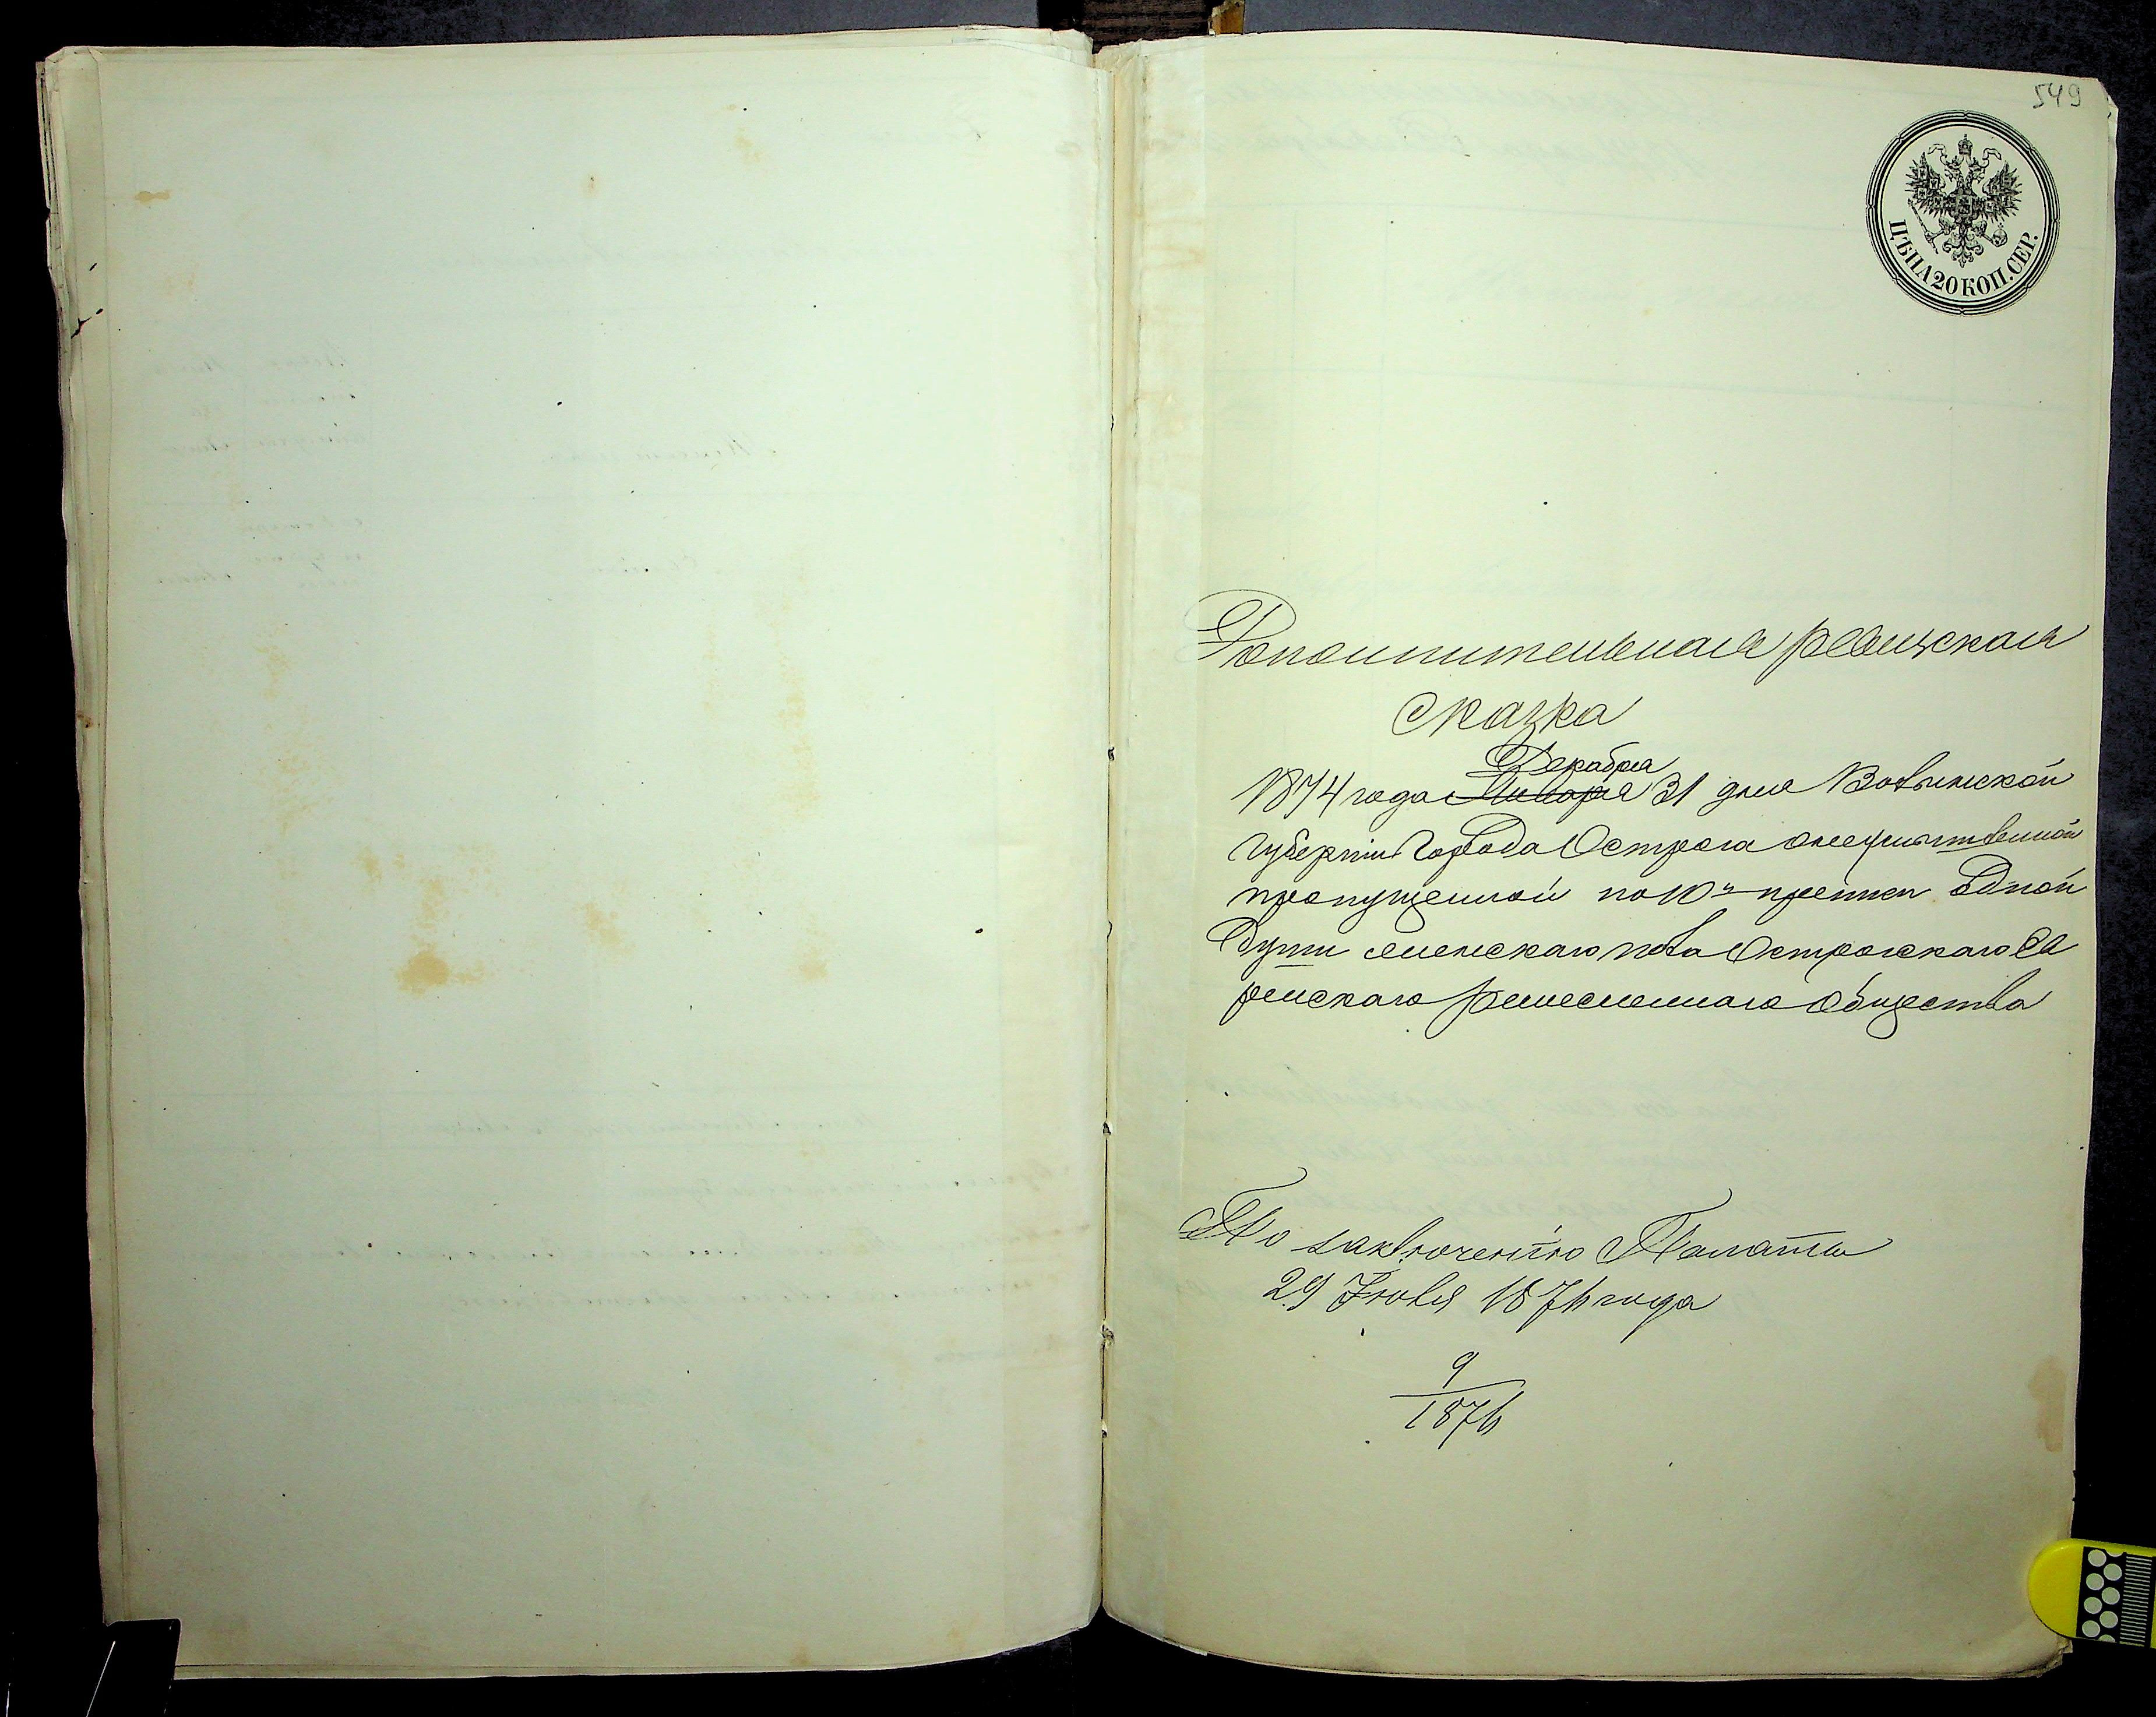 549
ЦѢНА 20 КОП. СЕР.
Дополнительная ревизская
сказка
Декабря
1874 года Января 31 дня Волынской
Губерніи Города Острога о
пропущенной по 10й одной
души женскаго пола Острожскаго Ев
рейскаго ремесленнаго общества
По заключенію Палаты
29 Іюля 1876 года
9
1876